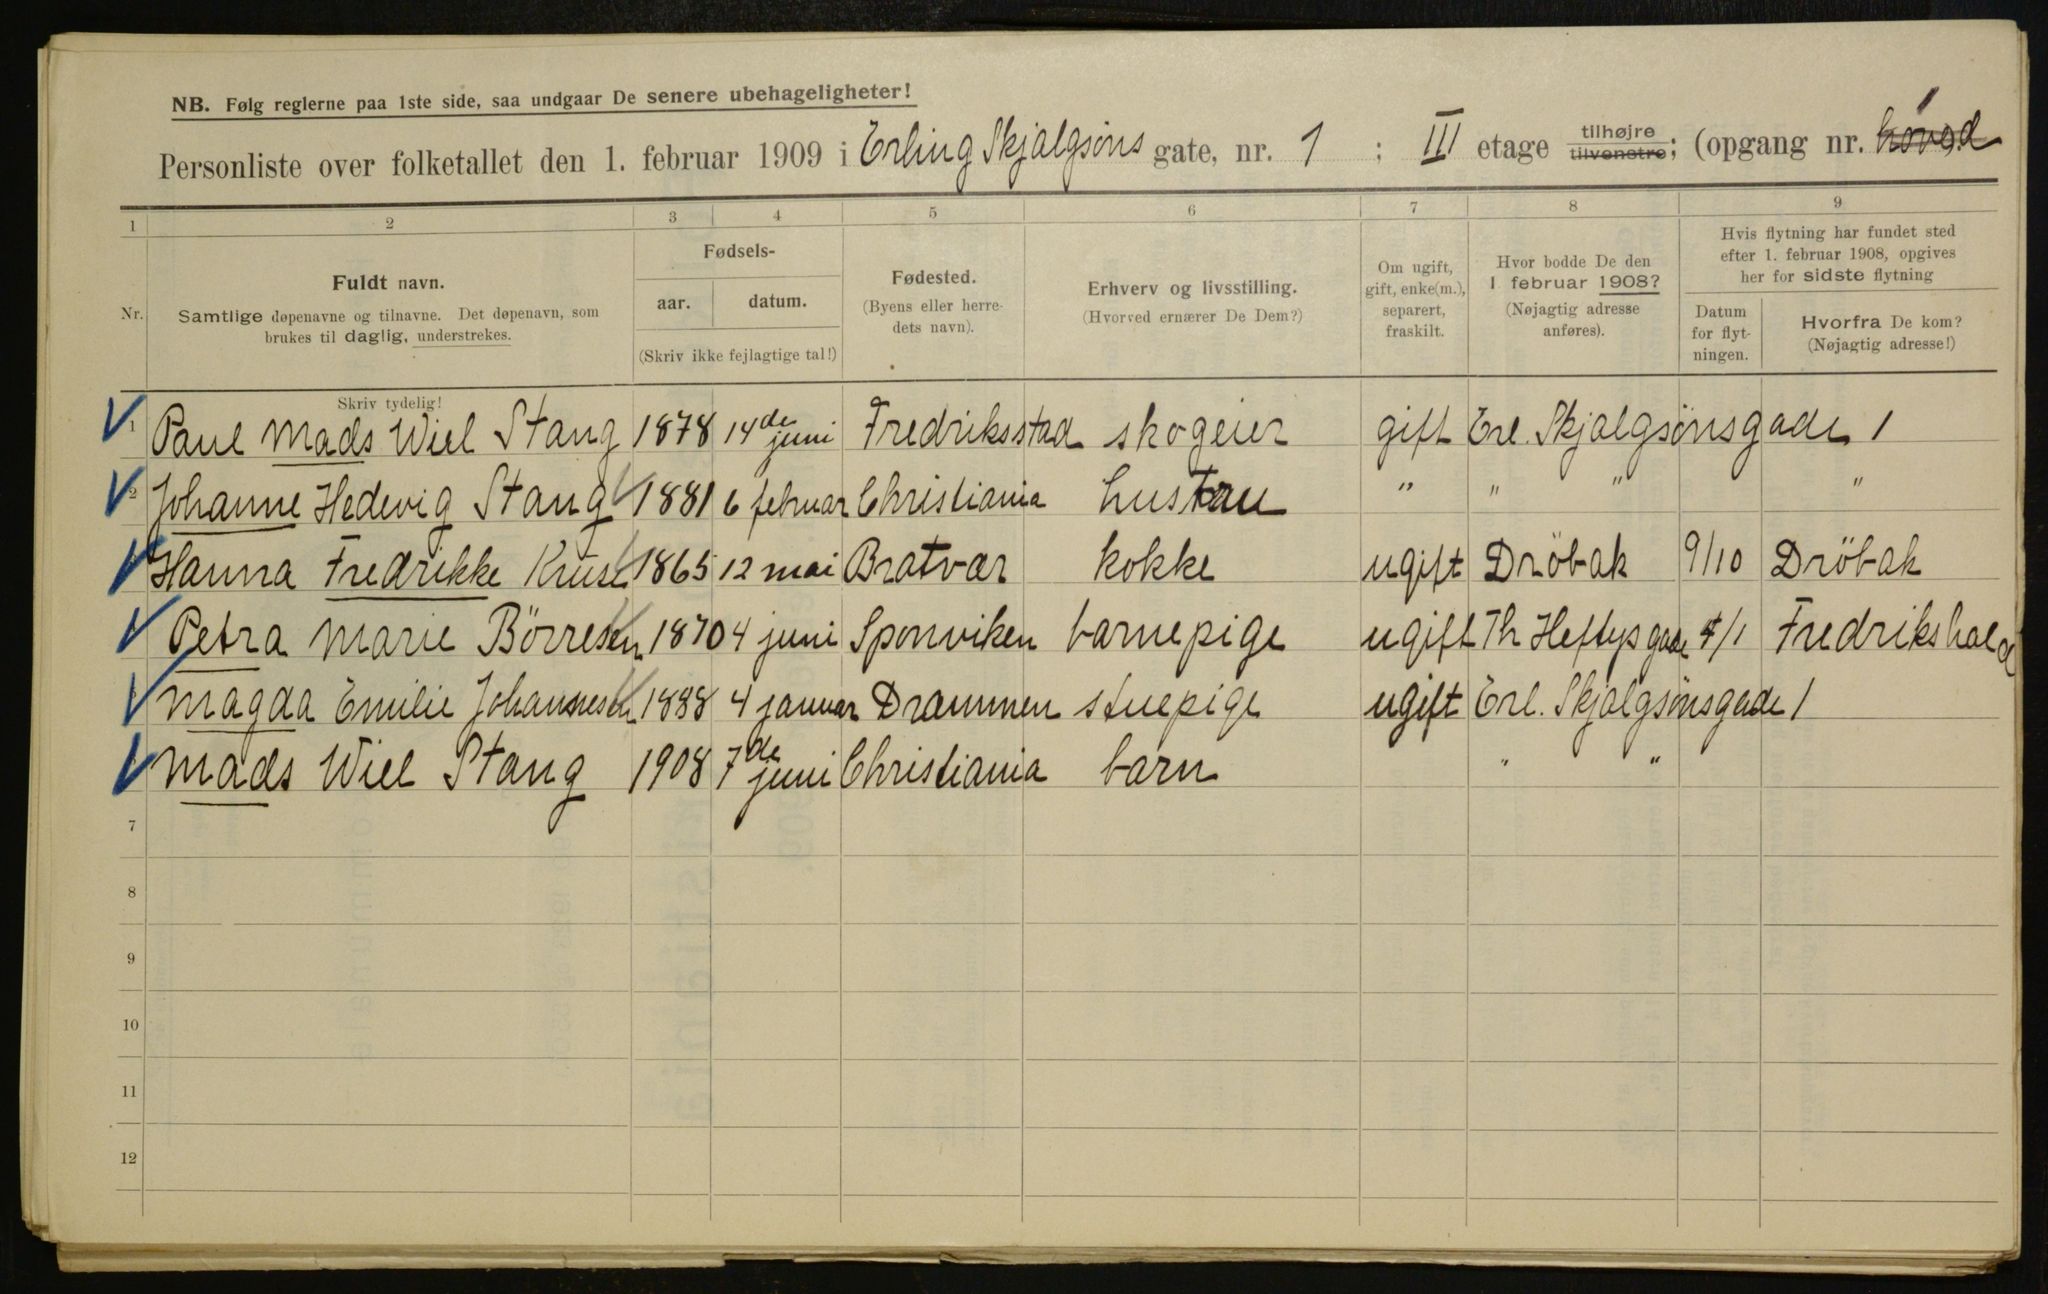 NB. Følg reglerne paa 1ste side, saa undgaar De senere ubehageligheter!
Personliste over folketallet den 1. februar 1909 i Erling Skjalgsöns gate, nr. 1 ; III etage tilhøjre tilvenstre; (opgang nr. 1
1 2 3 4 5 6 7 8 9
Nr.
Fuldt navn.
Samtlige døpenavne og tilnavne. Det døpenavn, som
brukes til daglig, understrekes.
Fødsels-
aar. datum.
(Skriv ikke fejlagtige tal!)
Fødested.
(Byens eller herre-
dets navn).
Erhverv og livsstilling.
(Hvorved ernærer De Dem?)
Om ugift,
gift, enke(m.),
separert,
fraskilt.
Hvor bodde De den
1 februar 1908?
(Nøjagtig adresse
anføres).
Hvis flytning har fundet sted
efter 1. februar 1908, opgives
her for sidste flytning
Datum
for flyt-
ningen.
Hvorfra De kom?
(Nøjagtig adresse!)
Skriv tydelig!
1 Paul Mads Wiel Stang 1878 14de juni Fredriksstad skogeier gift Erl. Skjalgsönsgade 1
2 Johanne Hedevig Stang 1881 6 februar Christiania hustru " " " "
Hanna Fredrikke Kruse 1865 12 mai Bratvær kokke ugift Dröbak 9/10 Dröbak
Petra Marie Börresen 1870 4 juni Sponviken barnepige ugift Th Heftysgade 4/1 Fredrikshald
Magda Emilie Johannesen 1888 4 januar Drammen stuepige ugift Erl. Skjalgsönsgade 1
Mads Wiel Stang 1908 7de juni Christiania barn " "
7
8
9
10
11
12